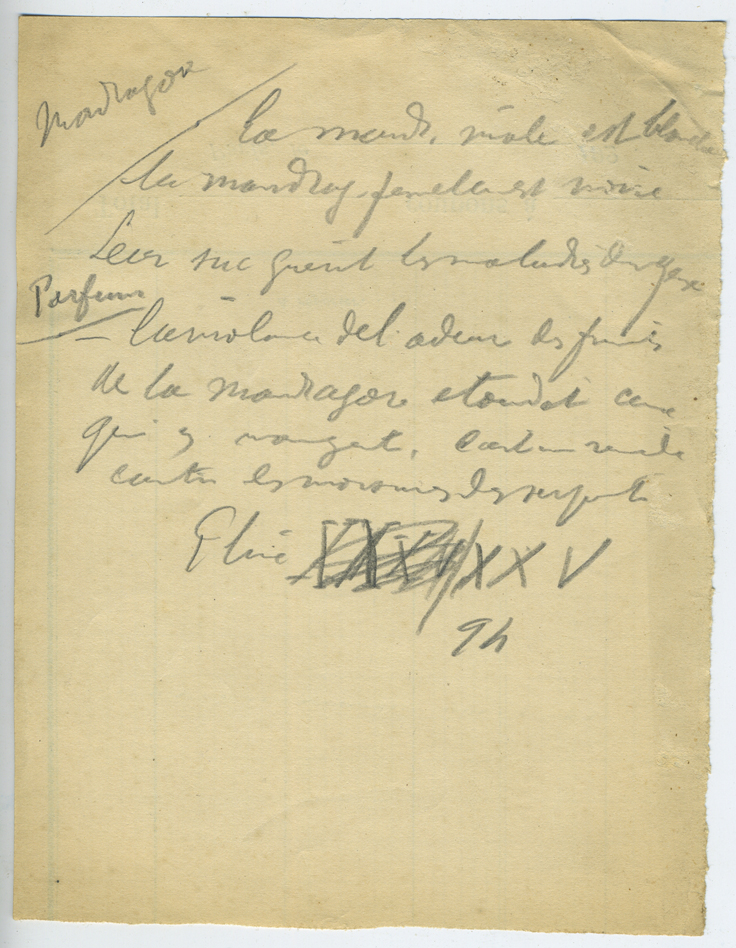 Mandragore
La mand. mâle est blanche
la mandrag. femelle est noire
Leur suc guérit les maladies des yeux
Parfum
– la violence de l'odeur des fruits
de la mandragore étourdit ceux
qui y mangent. C'est un remède
contre les morsures des serpents
Pline XXV
94